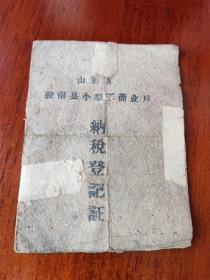 山东省
胶南县小型工商业户
納税登記証